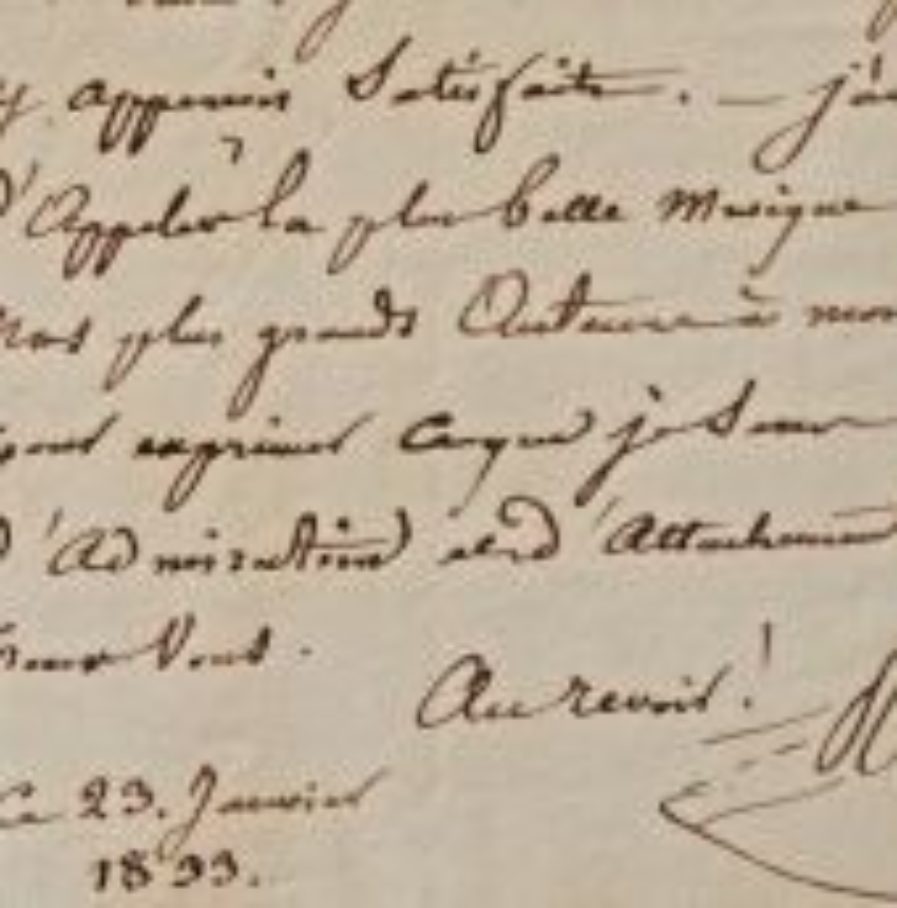 y appenir Satisfaite. — j'ai
d'Appeler la plus belle Musique
nos plus grands Auteurs à mon
pour exprimer ce que je Sens
d'Admiration et d'Attachement
Pour Vous.
Au revoir!
Ce 23. Janvier
1833.